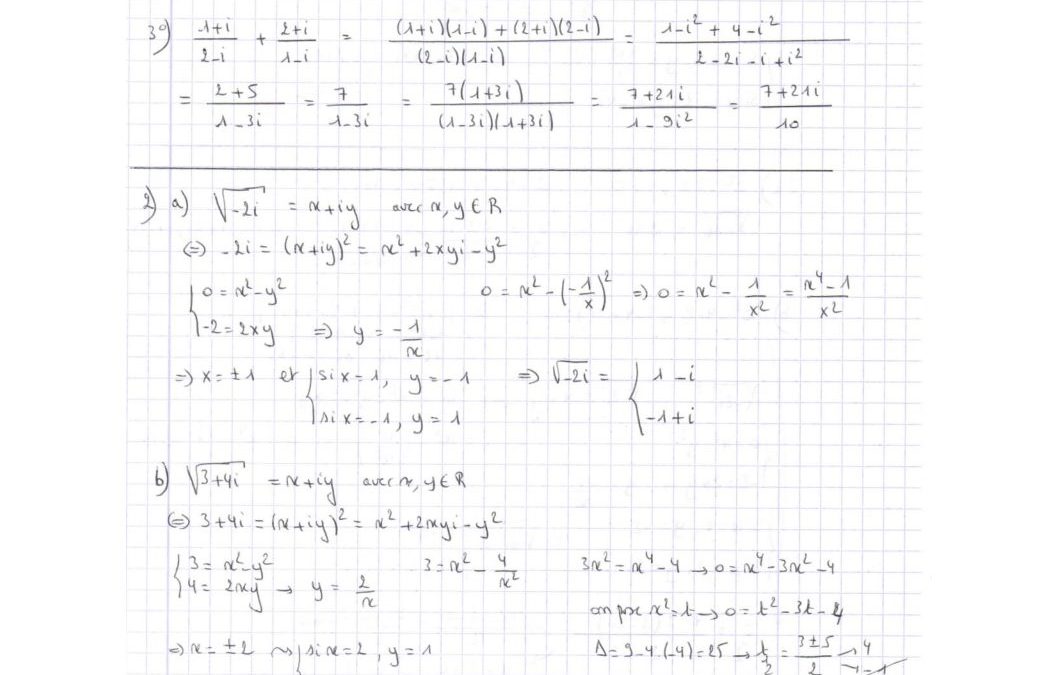 3°) (1+i)/(2-i) + (2+i)/(1-i) = ((1+i)(1-i) + (2+i)(2-i))/((2-i)(1-i)) = (1-i² + 4-i²)/(2-2i-i+i²)
= (2+5)/(1-3i) = 7/(1-3i) = 7(1+3i)/((1-3i)(1+3i)) = (7+21i)/(1-9i²) = (7+21i)/10
2) a) √(-2i) = x+iy avec x, y ∈ R
⇔ -2i = (x+iy)² = x²+2xyi-y²
{ 0 = x²-y² 0 = x²-(-1/x)² ⇒ 0 = x² - 1/x² = (x⁴-1)/x²
-2 = 2xy ⇒ y = -1/x
⇒ x = ±1 et { si x=1, y=-1 ⇒ √(-2i) = { 1-i
si x=-1, y=1 -1+i
b) √(3+4i) = x+iy avec x, y ∈ R
⇔ 3+4i = (x+iy)² = x²+2xyi-y²
{ 3 = x²-y² 3 = x² - 4/x² 3x² = x⁴-4 → 0 = x⁴-3x²-4
4 = 2xy → y = 2/x
on pose x²=t → 0 = t²-3t-4
⇒ x = ±2 { si x=2, y=1 Δ = 9-4.(-4) = 25 → t = (3±5)/2 → 4
→ -1